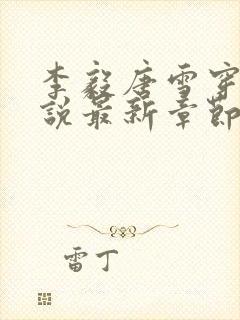 李毅唐雪穿
说最新章节
雷丁